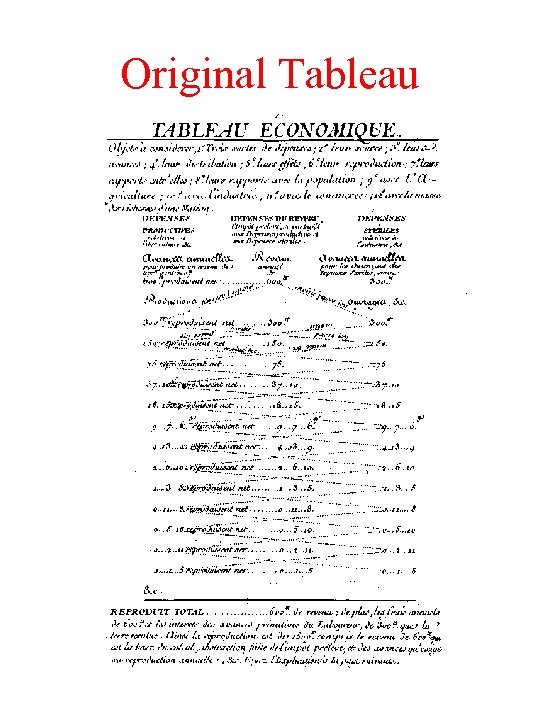 Original Tableau
TABLEAU ÉCONOMIQUE.
Objets à considérer, 1.° Trois sortes de dépenses; 2.° leur source; 3.° leurs
avances; 4.° leur distribution; 5.° leurs effets; 6.° leur reproduction; 7.° leurs
rapports entr'elles; 8.° leurs rapports avec la population; 9.° avec l'A-
griculture; avec l'industrie; avec le commerce; avec la masse
des richesses d'une Nation.
DEPENSES DEPENSES DU REVENU, DEPENSES
PRODUCTIVES l'Impôt prélevé, se partagent STERILES
relatives à aux Dépenses productives et relatives à
l'Agriculture, &c. aux Dépenses stériles. l'industrie, &c.
Avances annuelles Revenu Avances annuelles
pour produire un revenu de annuel pour les Ouvrages des
de Dépenses stériles, sont
600.# produisent net 600.# 300.#
Productions Ouvrages, &c.
300.# reproduisent net 300.# 300.#
150. reproduisent net 150. 150.
75. reproduisent net 75. 75.
37..10 reproduisent net 37..10. 37..10
18..15 reproduisent net 18..15. 18..15
9...7...6 reproduisent net 9...7...6 9...7...6
4..13...9 reproduisent net 4..13...9 4..13...9
2...6..10 reproduisent net 2...6..10 2...6..10
1...3...5 reproduisent net 1...3...5 1...3...5
0..11...8 reproduisent net 0..11...8 0..11...8
0...5..10 reproduisent net 0...5..10 0...5..10
0...2..11 reproduisent net 0...2..11 0...2..11
0...1...5 reproduisent net 0...1...5 0...1...5
&c.
REPRODUIT TOTAL 600.# de revenu; de plus, les frais annuels
de 600.# et les intérêts des avances primitives du Laboureur, de 300.# que la
terre restitue. Ainsi la reproduction est de 1500.# compris le revenu de 600.# qui
est la base du calcul, abstraction faite de l'impôt prélevé, et des avances qu'exige
sa reproduction annuelle, &c. Voyez l'Explication à la page suivante.